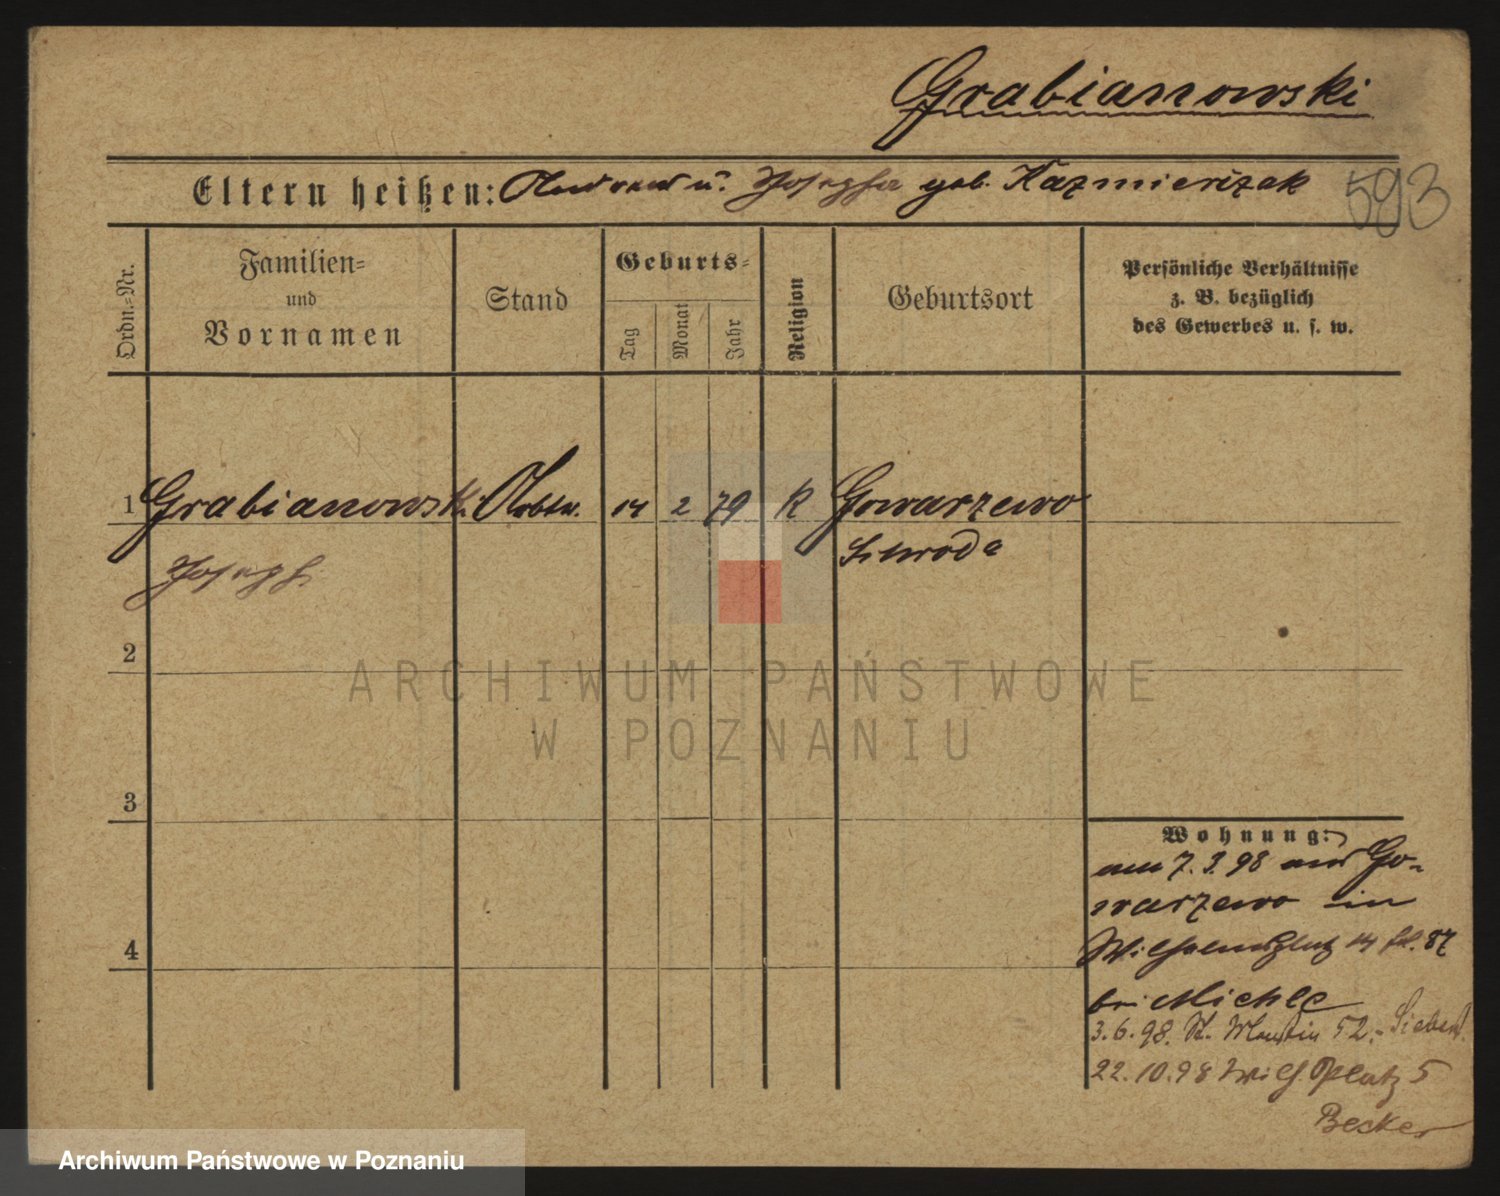 Grabianowski
Eltern heißen: Andreas u. Josepha geb. Kazmierczak
593
Ordn.=Nr.
Familien=
und
Vornamen
Stand
Geburts=
Tag
Monat
Jahr
Religion
Geburtsort
Persönliche Verhältnisse
z. B. bezüglich
des Gewerbes u. s. w.
1 Grabianowski Arbtr. 14 2 79 K Gowarzewo
Joseph. Schroda
2
3
4
Wohnung:
am 7.3.98 aus Go-
warzewo in
Wilhelmsplatz 14
bei Michle
3.6.98. St. Martin 52. Siebert
22.10.98 Wilh. Platz 5
Becker
ARCHIWUM PAŃSTWOWE
W POZNANIU
Archiwum Państwowe w Poznaniu